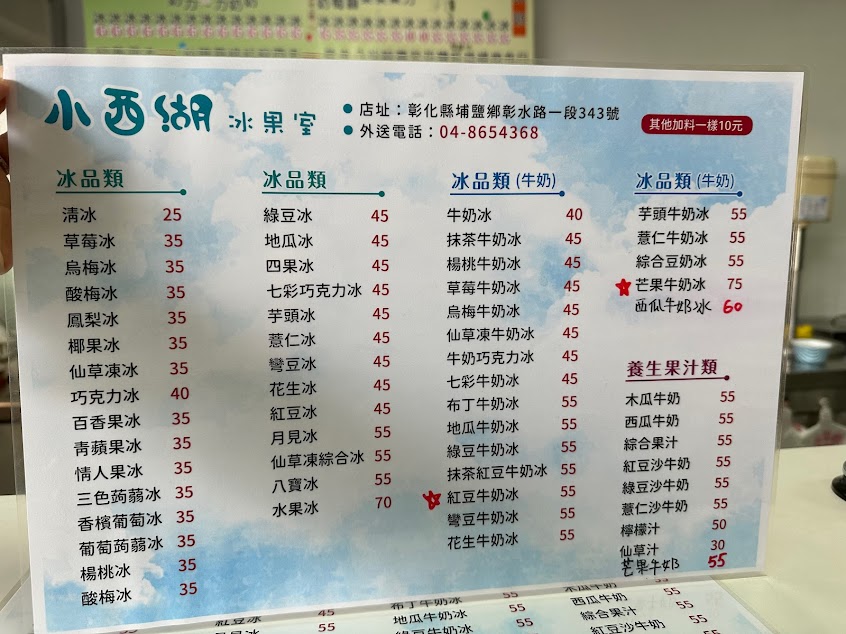 小西湖 冰果室
店址：彰化縣埔鹽鄉彰水路一段343號
外送電話：04-8654368
其他加料一樣10元
冰品類
清冰 25
草莓冰 35
烏梅冰 35
酸梅冰 35
鳳梨冰 35
椰果冰 35
仙草凍冰 35
巧克力冰 40
百香果冰 35
青蘋果冰 35
情人果冰 35
三色蒟蒻冰 35
香檳葡萄冰 35
葡萄蒟蒻冰 35
楊桃冰 35
酸梅冰 35
冰品類
綠豆冰 45
地瓜冰 45
四果冰 45
七彩巧克力冰 45
芋頭冰 45
薏仁冰 45
彎豆冰 45
花生冰 45
紅豆冰 45
月見冰 55
仙草凍綜合冰 55
八寶冰 55
水果冰 70
冰品類 (牛奶)
牛奶冰 40
抹茶牛奶冰 45
楊桃牛奶冰 45
草莓牛奶冰 45
烏梅牛奶冰 45
仙草凍牛奶冰 45
牛奶巧克力冰 45
七彩牛奶冰 45
布丁牛奶冰 55
地瓜牛奶冰 55
綠豆牛奶冰 55
抹茶紅豆牛奶冰 55
紅豆牛奶冰 55
彎豆牛奶冰 55
花生牛奶冰 55
冰品類 (牛奶)
芋頭牛奶冰 55
薏仁牛奶冰 55
綜合豆奶冰 55
芒果牛奶冰 75
西瓜牛奶冰 60
養生果汁類
木瓜牛奶 55
西瓜牛奶 55
綜合果汁 55
紅豆沙牛奶 55
綠豆沙牛奶 55
薏仁沙牛奶 55
檸檬汁 50
仙草汁 30
芒果牛奶 55
紅豆冰 45
布丁牛奶冰 55
地瓜牛奶冰 55
木瓜牛奶 55
西瓜牛奶 55
綜合果汁 55
紅豆沙牛奶 55